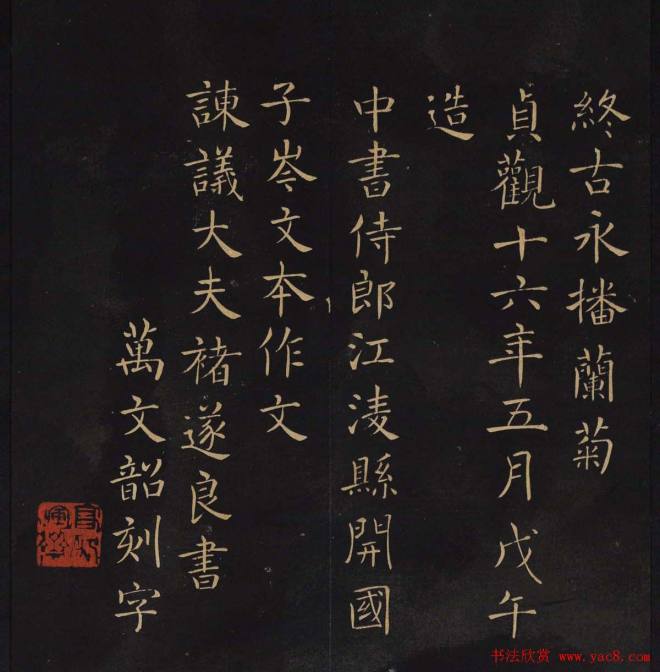 終古永播蘭菊
貞觀十六年五月戊午
造
中書侍郎江淩縣開國
子岑文本作文
諫議大夫褚遂良書
萬文韶刻字
书法欣赏 www.yac8.com